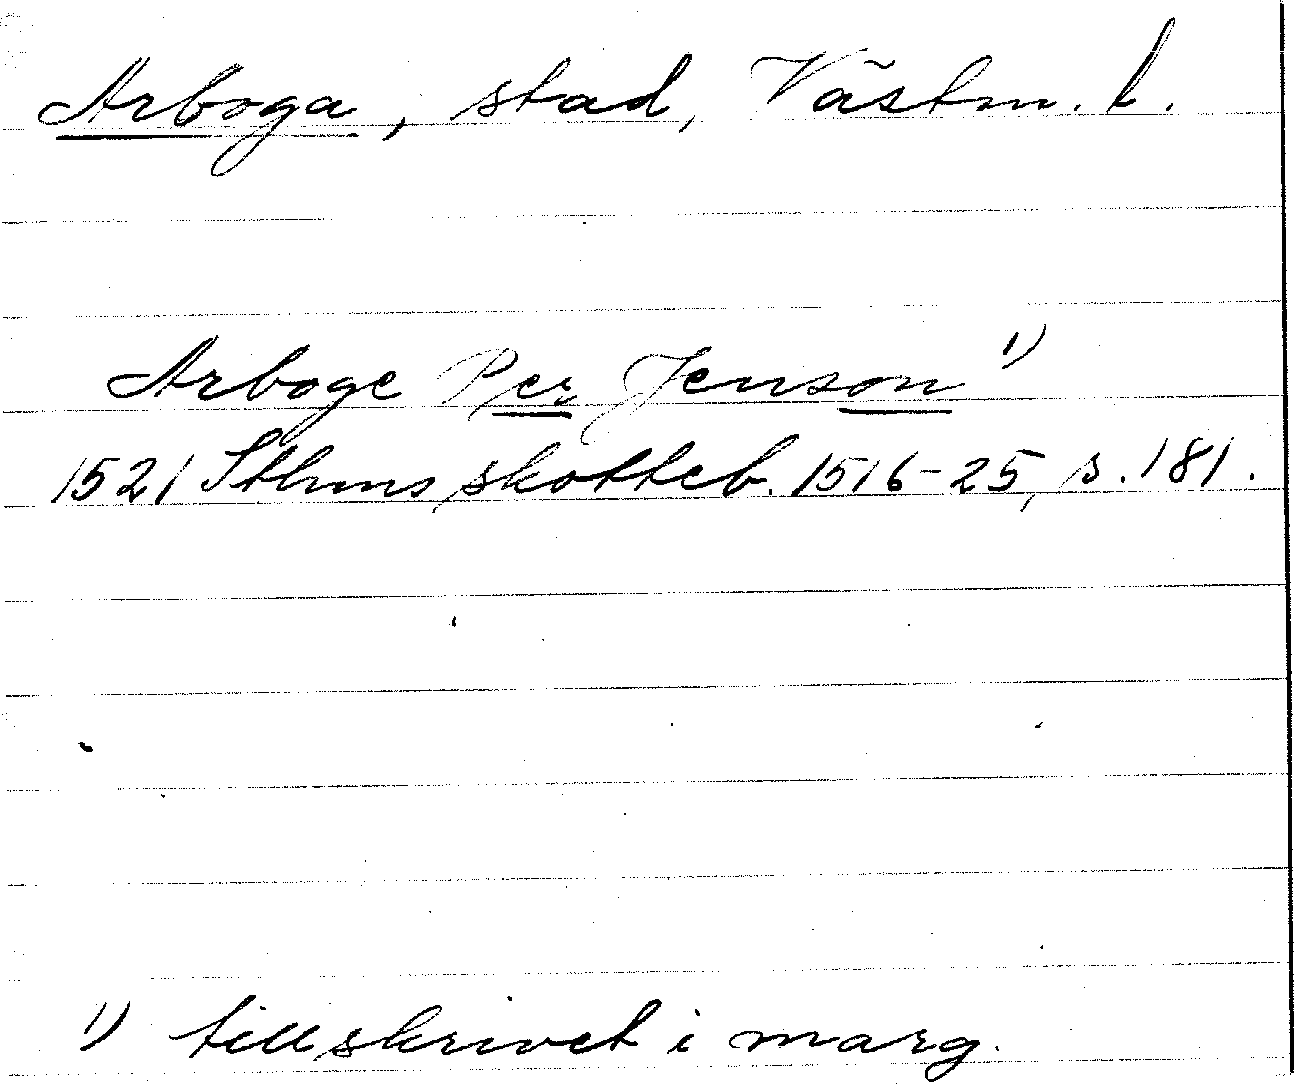 Arboga, stad, Västm. l.
Arboge Per Jenson 1)
1521 Sthms skotteb. 1516-25, s. 181.
1) tillskrivet i marg.